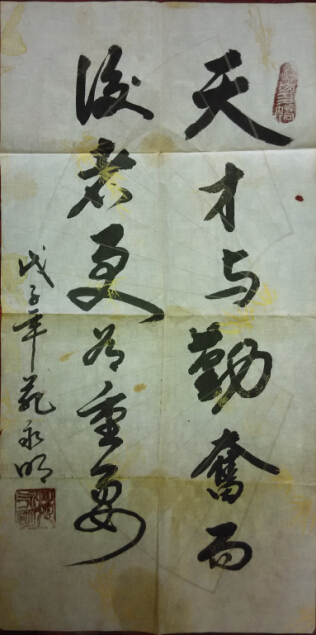 天才与勤奮而
後者更为重要
戊子年范永明